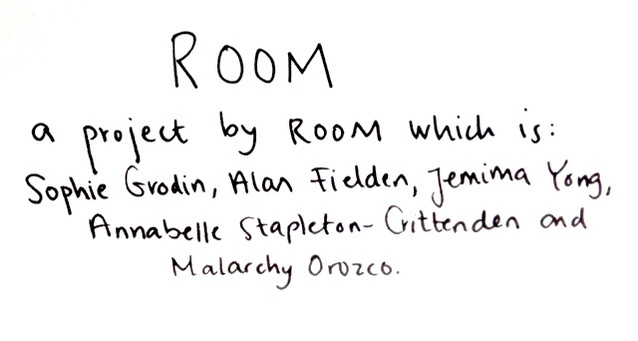 ROOM
a project by ROOM which is:
Sophie Grodin, Alan Fielden, Jemima Yong,
Annabelle Stapleton-Crittenden and
Malarchy Orozco.